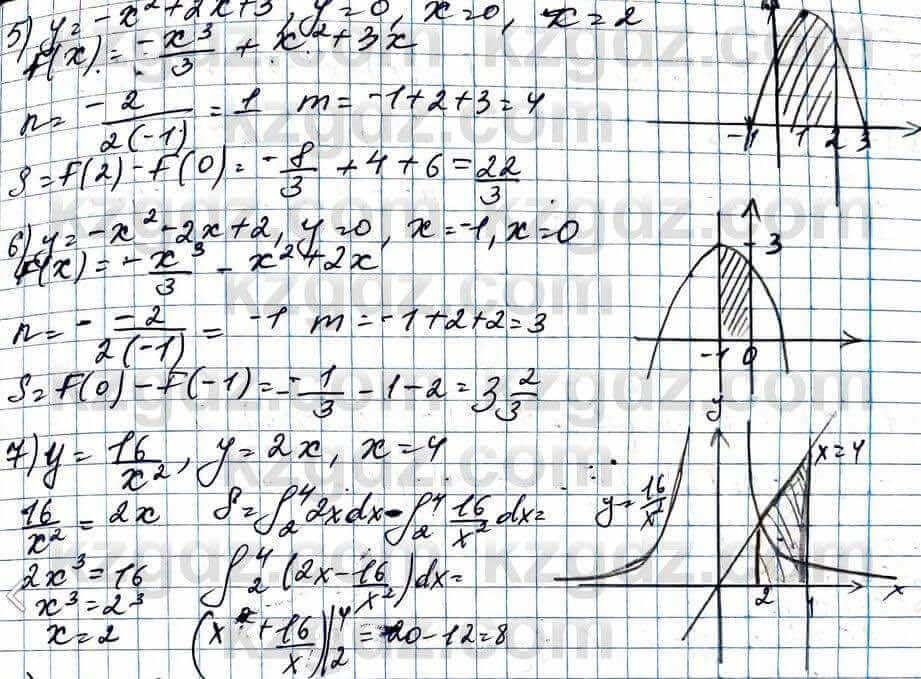 5) y = -x² + 2x + 3, y = 0, x = 0, x = 2
F(x) = -x³/3 + x² + 3x
n = - 2/2(-1) = 1 m = -1 + 2 + 3 = 4
S = F(2) - F(0) = -8/3 + 4 + 6 = 22/3
-1 1 2 3
6) y = -x² - 2x + 2, y = 0, x = -1, x = 0
F(x) = -x³/3 - x² + 2x
n = - -2/2(-1) = -1 m = -1 + 2 + 2 = 3
S = F(0) - F(-1) = -1/3 - 1 - 2 = 3 2/3
3
-1 0
7) y = 16/x², y = 2x, x = 4
16/x² = 2x S = ∫₂⁴ 2x dx - ∫₂⁴ 16/x² dx =
2x³ = 16 ∫₂⁴ (2x - 16/x²) dx =
x³ = 2³
x = 2 (x² + 16/x)|₂⁴ = 20 - 12 = 8
y
y = 16/x²
x = 4
2 x
kzgdz.com